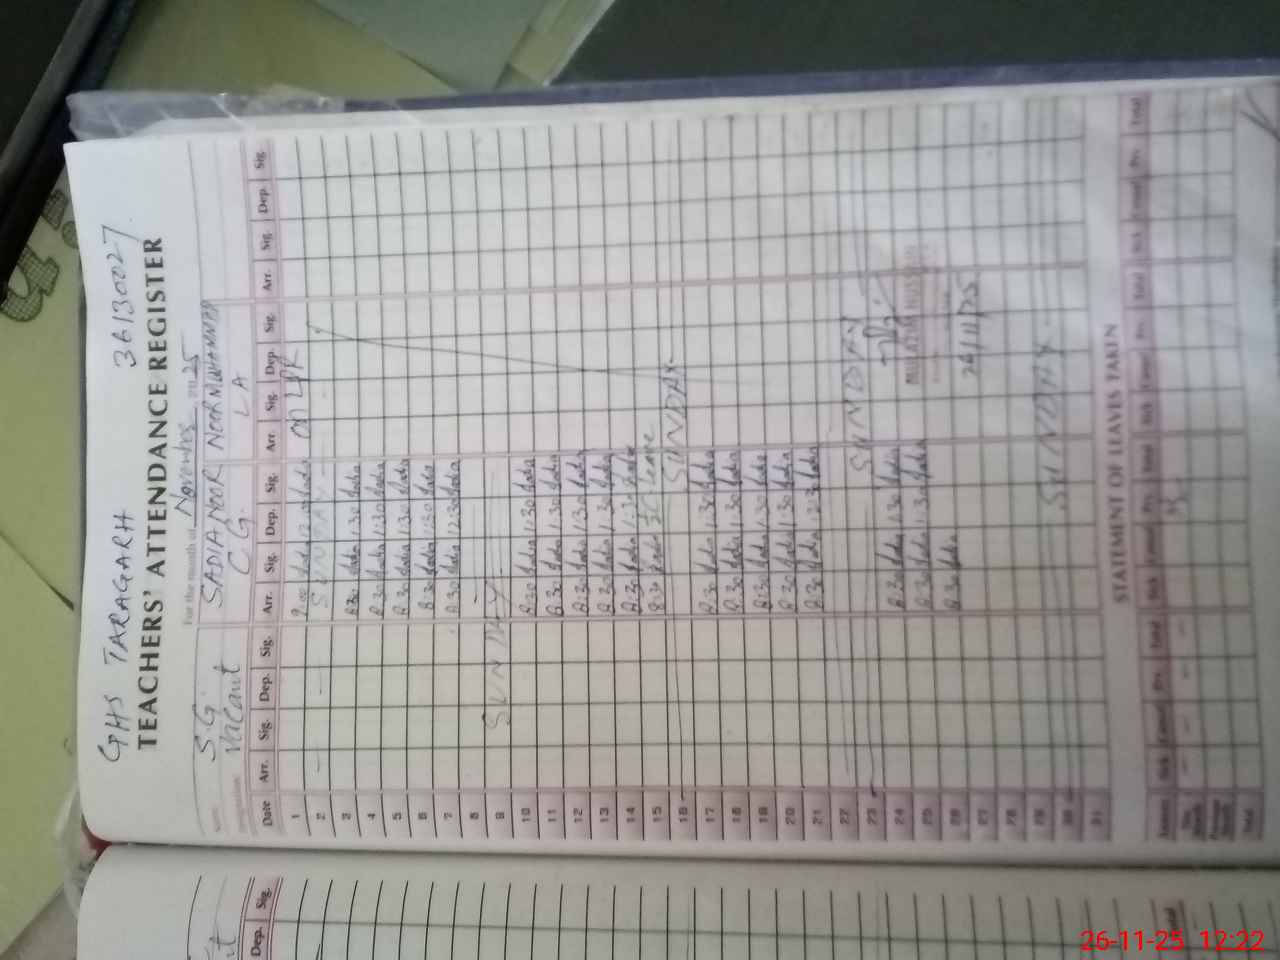 GHS TARAGARH 36130027
TEACHERS' ATTENDANCE REGISTER
For the month of November 2025
S.G. SADIA NOOR NOOR MUHAMMAD
Vacant C.G. LA
Date Arr. Sig. Dep. Sig. Arr. Sig. Dep. Sig. Arr. Sig. Dep. Sig. Arr. Sig. Dep. Sig.
1 9:00 Sadia 12:00 Sadia
2 SUNDAY
3 8:30 Sadia 1:30 Sadia
4 8:30 Sadia 1:30 Sadia
5 8:30 Sadia 1:30 Sadia
6 8:30 Sadia 1:30 Sadia
7 8:30 Sadia 12:30 Sadia
8
9 SUNDAY
10 8:30 Sadia 1:30 Sadia
11 8:30 Sadia 1:30 Sadia
12 8:30 Sadia 1:30 Sadia
13 8:30 Sadia 1:30 Sadia
14 8:30 Sadia 1:30 Sadia
15 8:30 Sadia Leave
16 SUNDAY
17 8:30 Sadia 1:30 Sadia
18 8:30 Sadia 1:30 Sadia
19 8:30 Sadia 1:30 Sadia
20 8:30 Sadia 1:30 Sadia
21 8:30 Sadia Sadia
22
23 SUNDAY
24 8:30 Sadia 1:30 Sadia
25 8:30 Sadia 1:30 Sadia
26 8:30 Sadia 26/11/25
27
28
29
30 SUNDAY
31
STATEMENT OF LEAVES TAKEN
Leaves Sick Casual Prv. Total Sick Casual Prv. Total Sick Casual Prv. Total Sick Casual Prv. Total
Total
Dep. Sig.
26-11-25 12:22